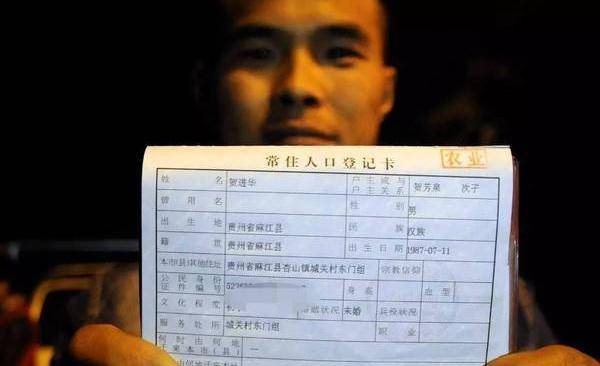 常住人口登记卡 农业
姓名 贺进华 户主或与户主关系 贺芳泉 次子
曾用名 性别 男
出生地 贵州省麻江县 民族 汉族
籍贯 贵州省麻江县 出生日期 1987-07-11
本市(县)其他住址 贵州省麻江县杏山镇城关村东门组 宗教信仰
公民身份证件编号 身高 血型
文化程度 初 婚姻状况 未婚 兵役状况
服务处所 城关村东门组 职业
何时由何地迁来本市(县) 一